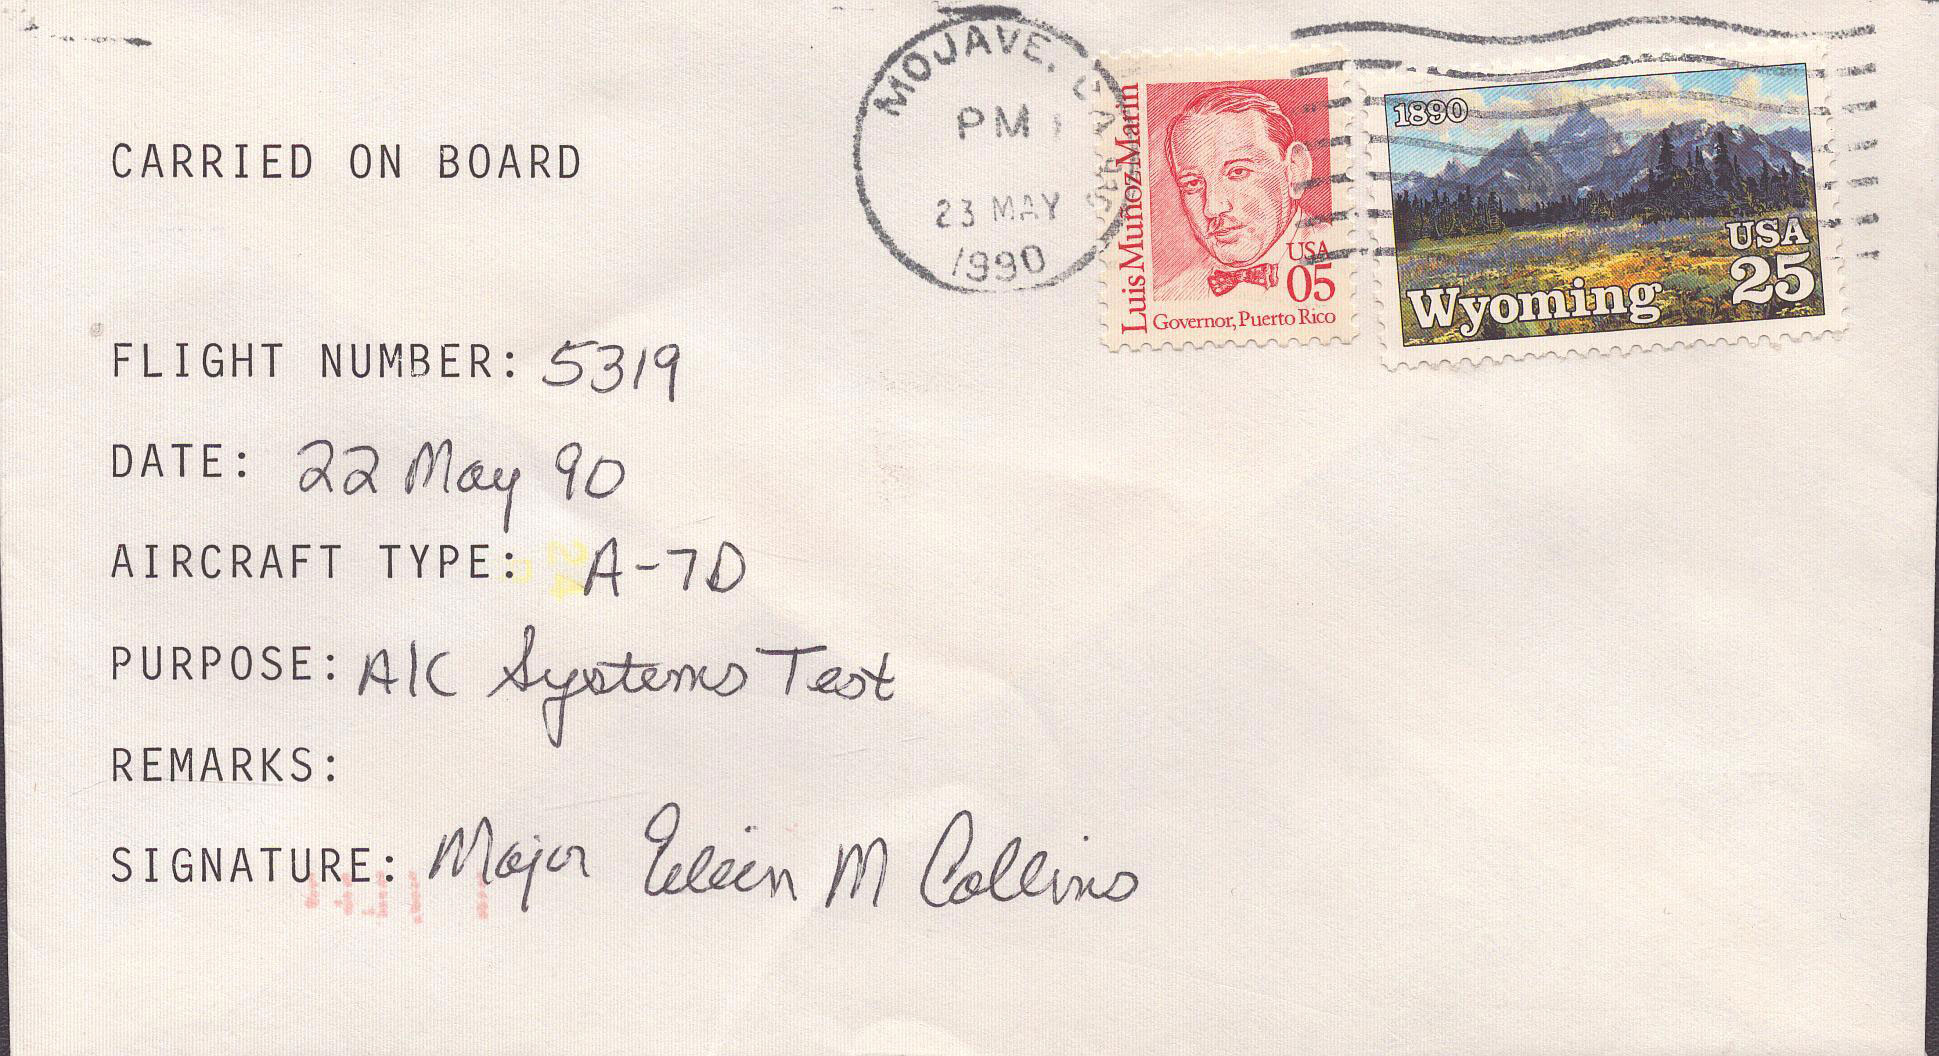 MOJAVE, CA
PM
23 MAY
1990
Luis Muñoz Marin
USA
05
Governor, Puerto Rico
1890
USA
25
Wyoming
CARRIED ON BOARD
FLIGHT NUMBER: 5319
DATE: 22 May 90
AIRCRAFT TYPE: A-7D
PURPOSE: A/C Systems Test
REMARKS:
SIGNATURE: Major Eileen M Collins